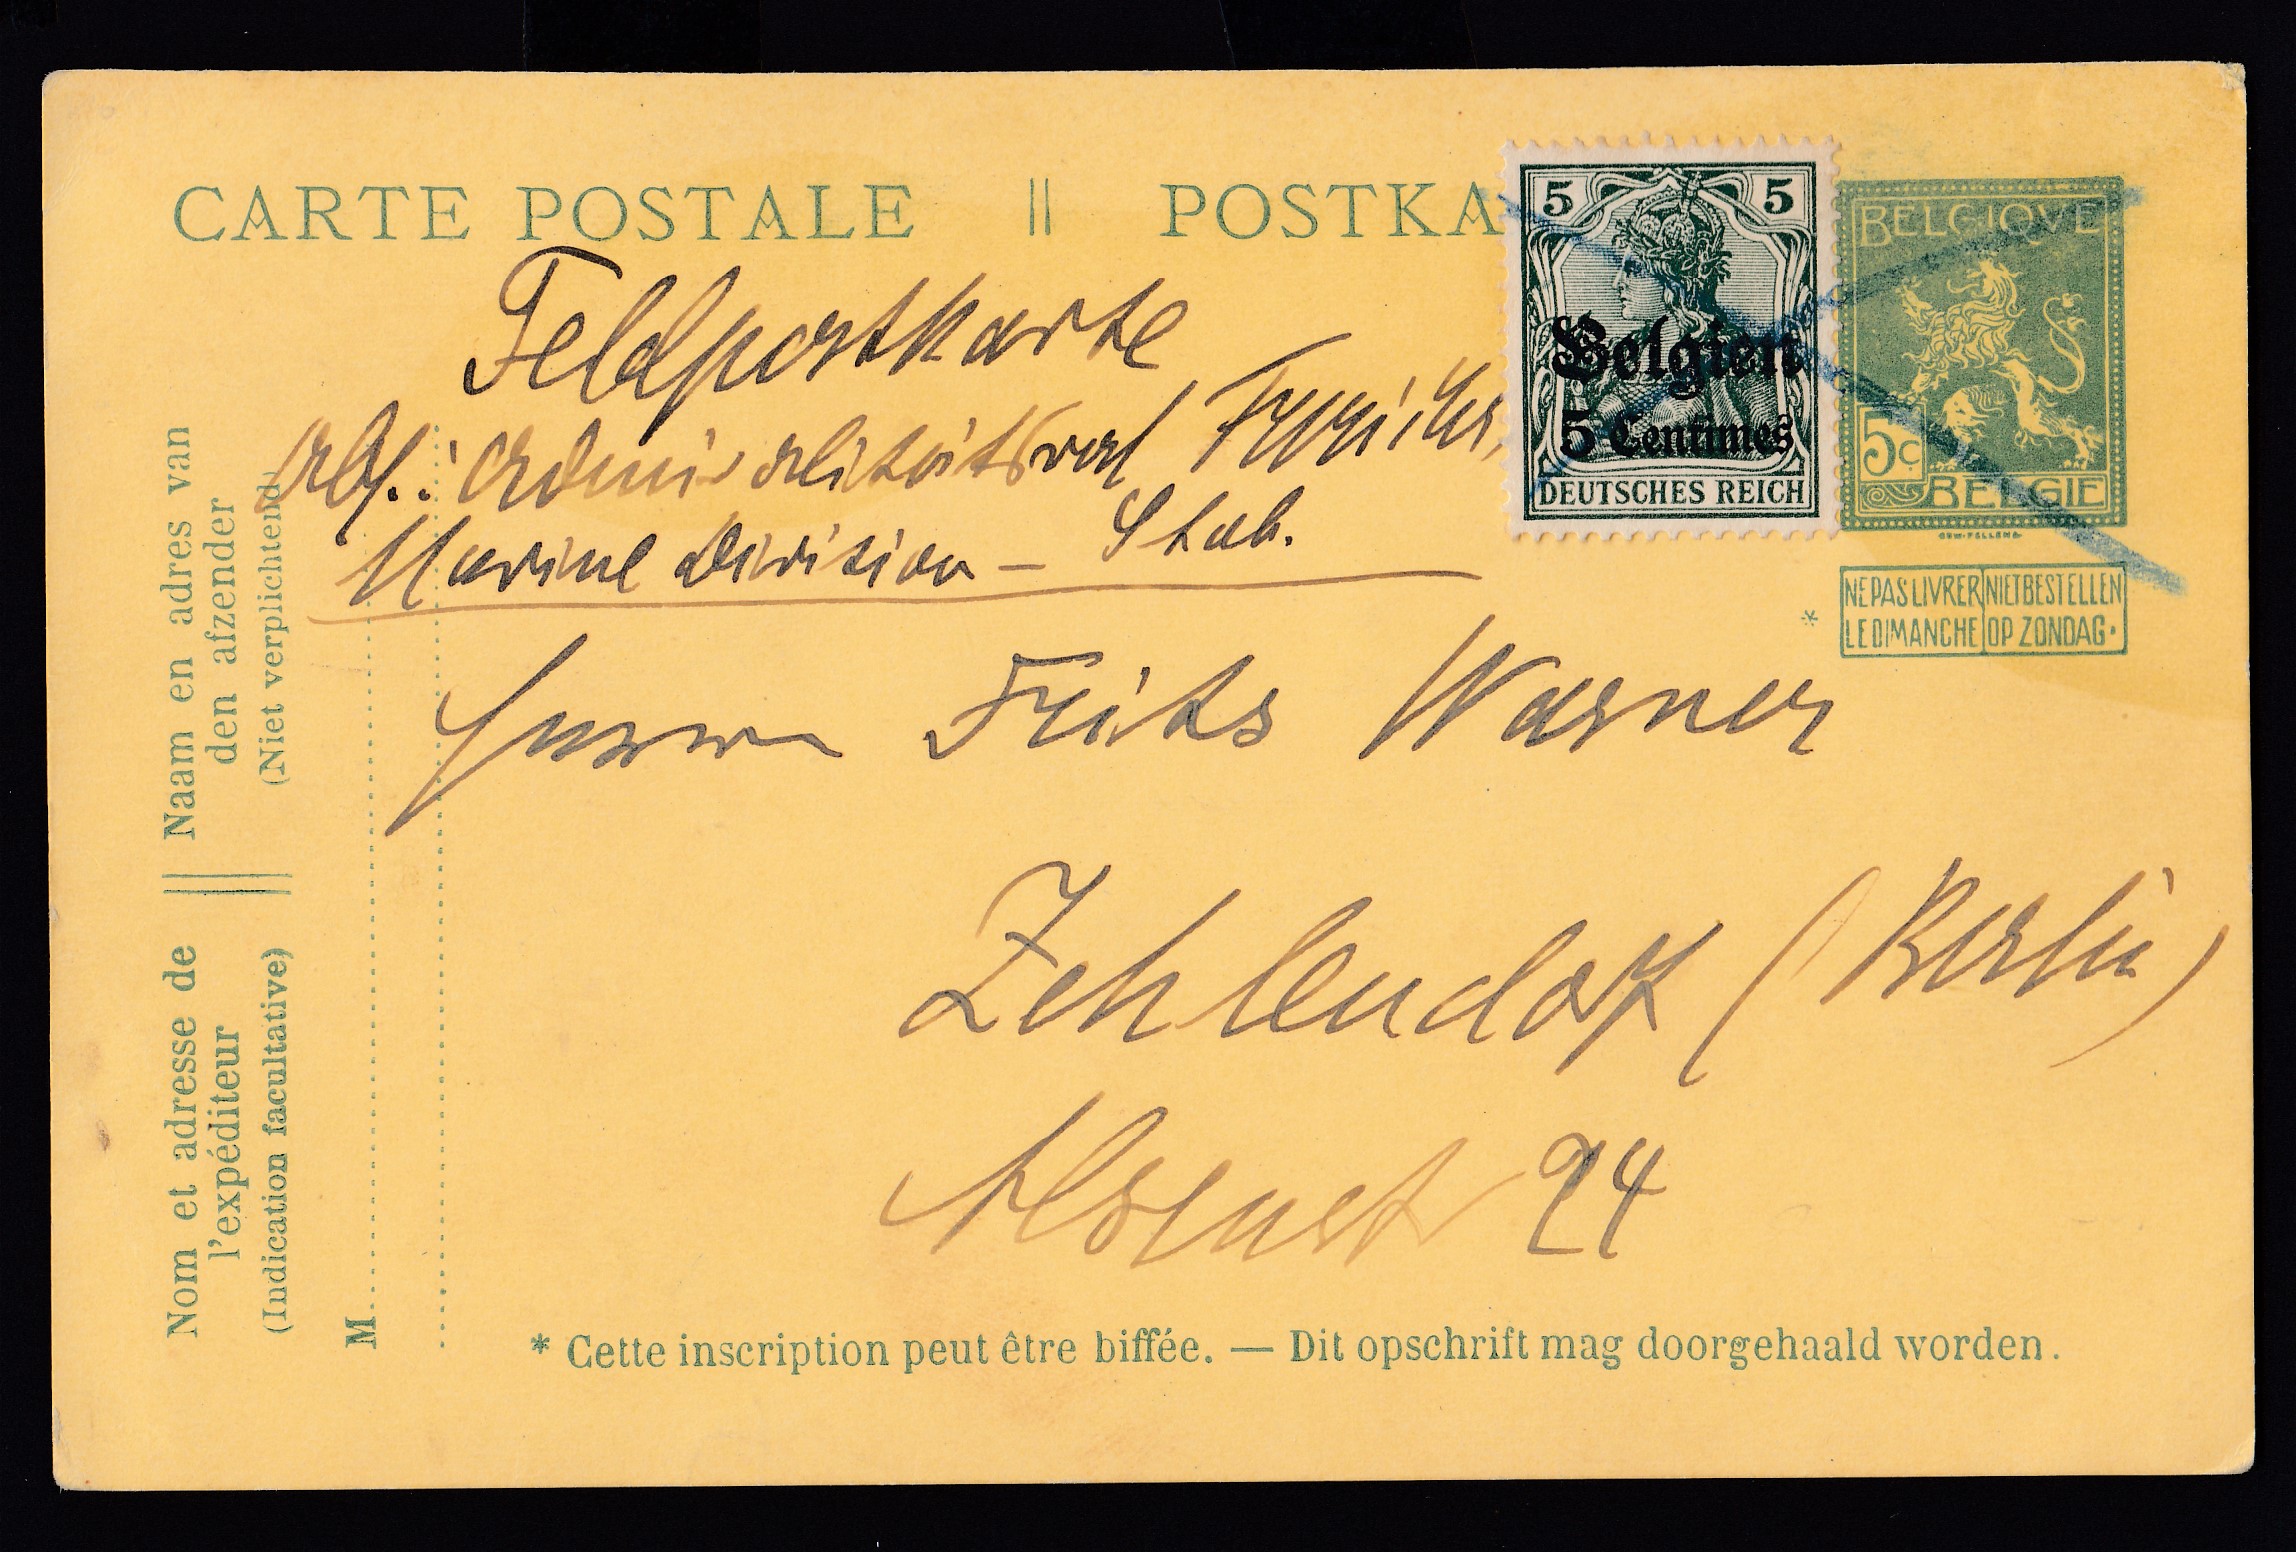 CARTE POSTALE || POSTKA
5 5
Belgien
5 Centimes
DEUTSCHES REICH
BELGIQVE
5c
BELGIE
NE PAS LIVRER LE DIMANCHE
NIET BESTELLEN OP ZONDAG.
*
Feldpostkarte
Abs.: Admiralitätsrat
Marine Division – Stab.
Herrn Fritz Warner
Zehlendorf (Berlin)
Alsenstr 24
Naam en adres van
den afzender
(Niet verplichtend)
Nom et adresse de
l'expéditeur
(Indication facultative)
M
* Cette inscription peut être biffée. — Dit opschrift mag doorgehaald worden.